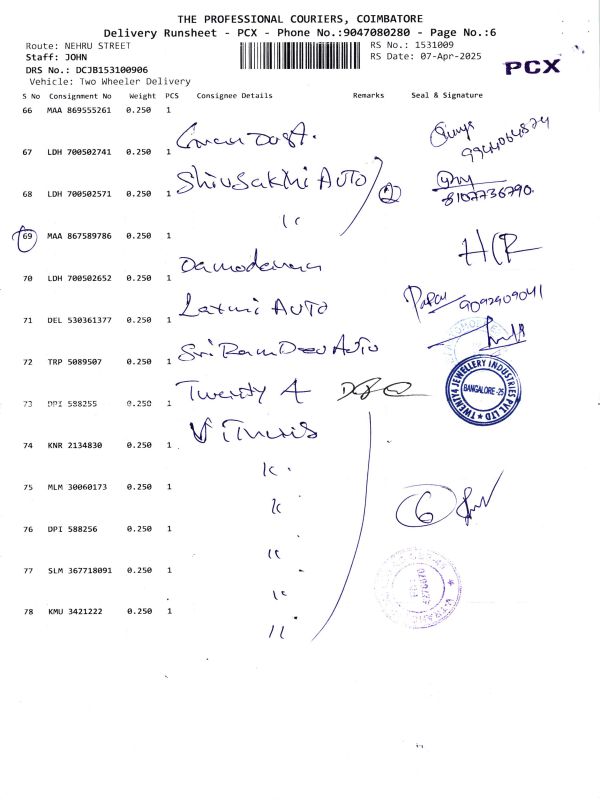 THE PROFESSIONAL COURIERS, COIMBATORE
Delivery Runsheet - PCX - Phone No.:9047080280 - Page No.:6
Route: NEHRU STREET
RS No.: 1531009
Staff: JOHN
RS Date: 07-Apr-2025
DRS No.: DCJB153100906
PCX
Vehicle: Two Wheeler Delivery
S No Consignment No Weight PCS Consignee Details Remarks Seal & Signature
66 MAA 869555261 0.250 1
67 LDH 700502741 0.250 1
68 LDH 700502571 0.250 1
Shivsakthi Auto
2
8107736790
69 MAA 867589786 0.250 1
Damodaran
HCR
70 LDH 700502652 0.250 1
Laxmi Auto
9092409041
71 DEL 530361377 0.250 1
Sri Ram Dev Auto
72 TRP 5089507 0.250 1
TWENTY4 JEWELLERY INDUSTRIES PVT LTD
BANGALORE-25
Twenty 4
73 DPI 588255 0.250 1
74 KNR 2134830 0.250 1
75 MLM 30060173 0.250 1
6
76 DPI 588256 0.250 1
77 SLM 367718091 0.250 1
78 KMU 3421222 0.250 1